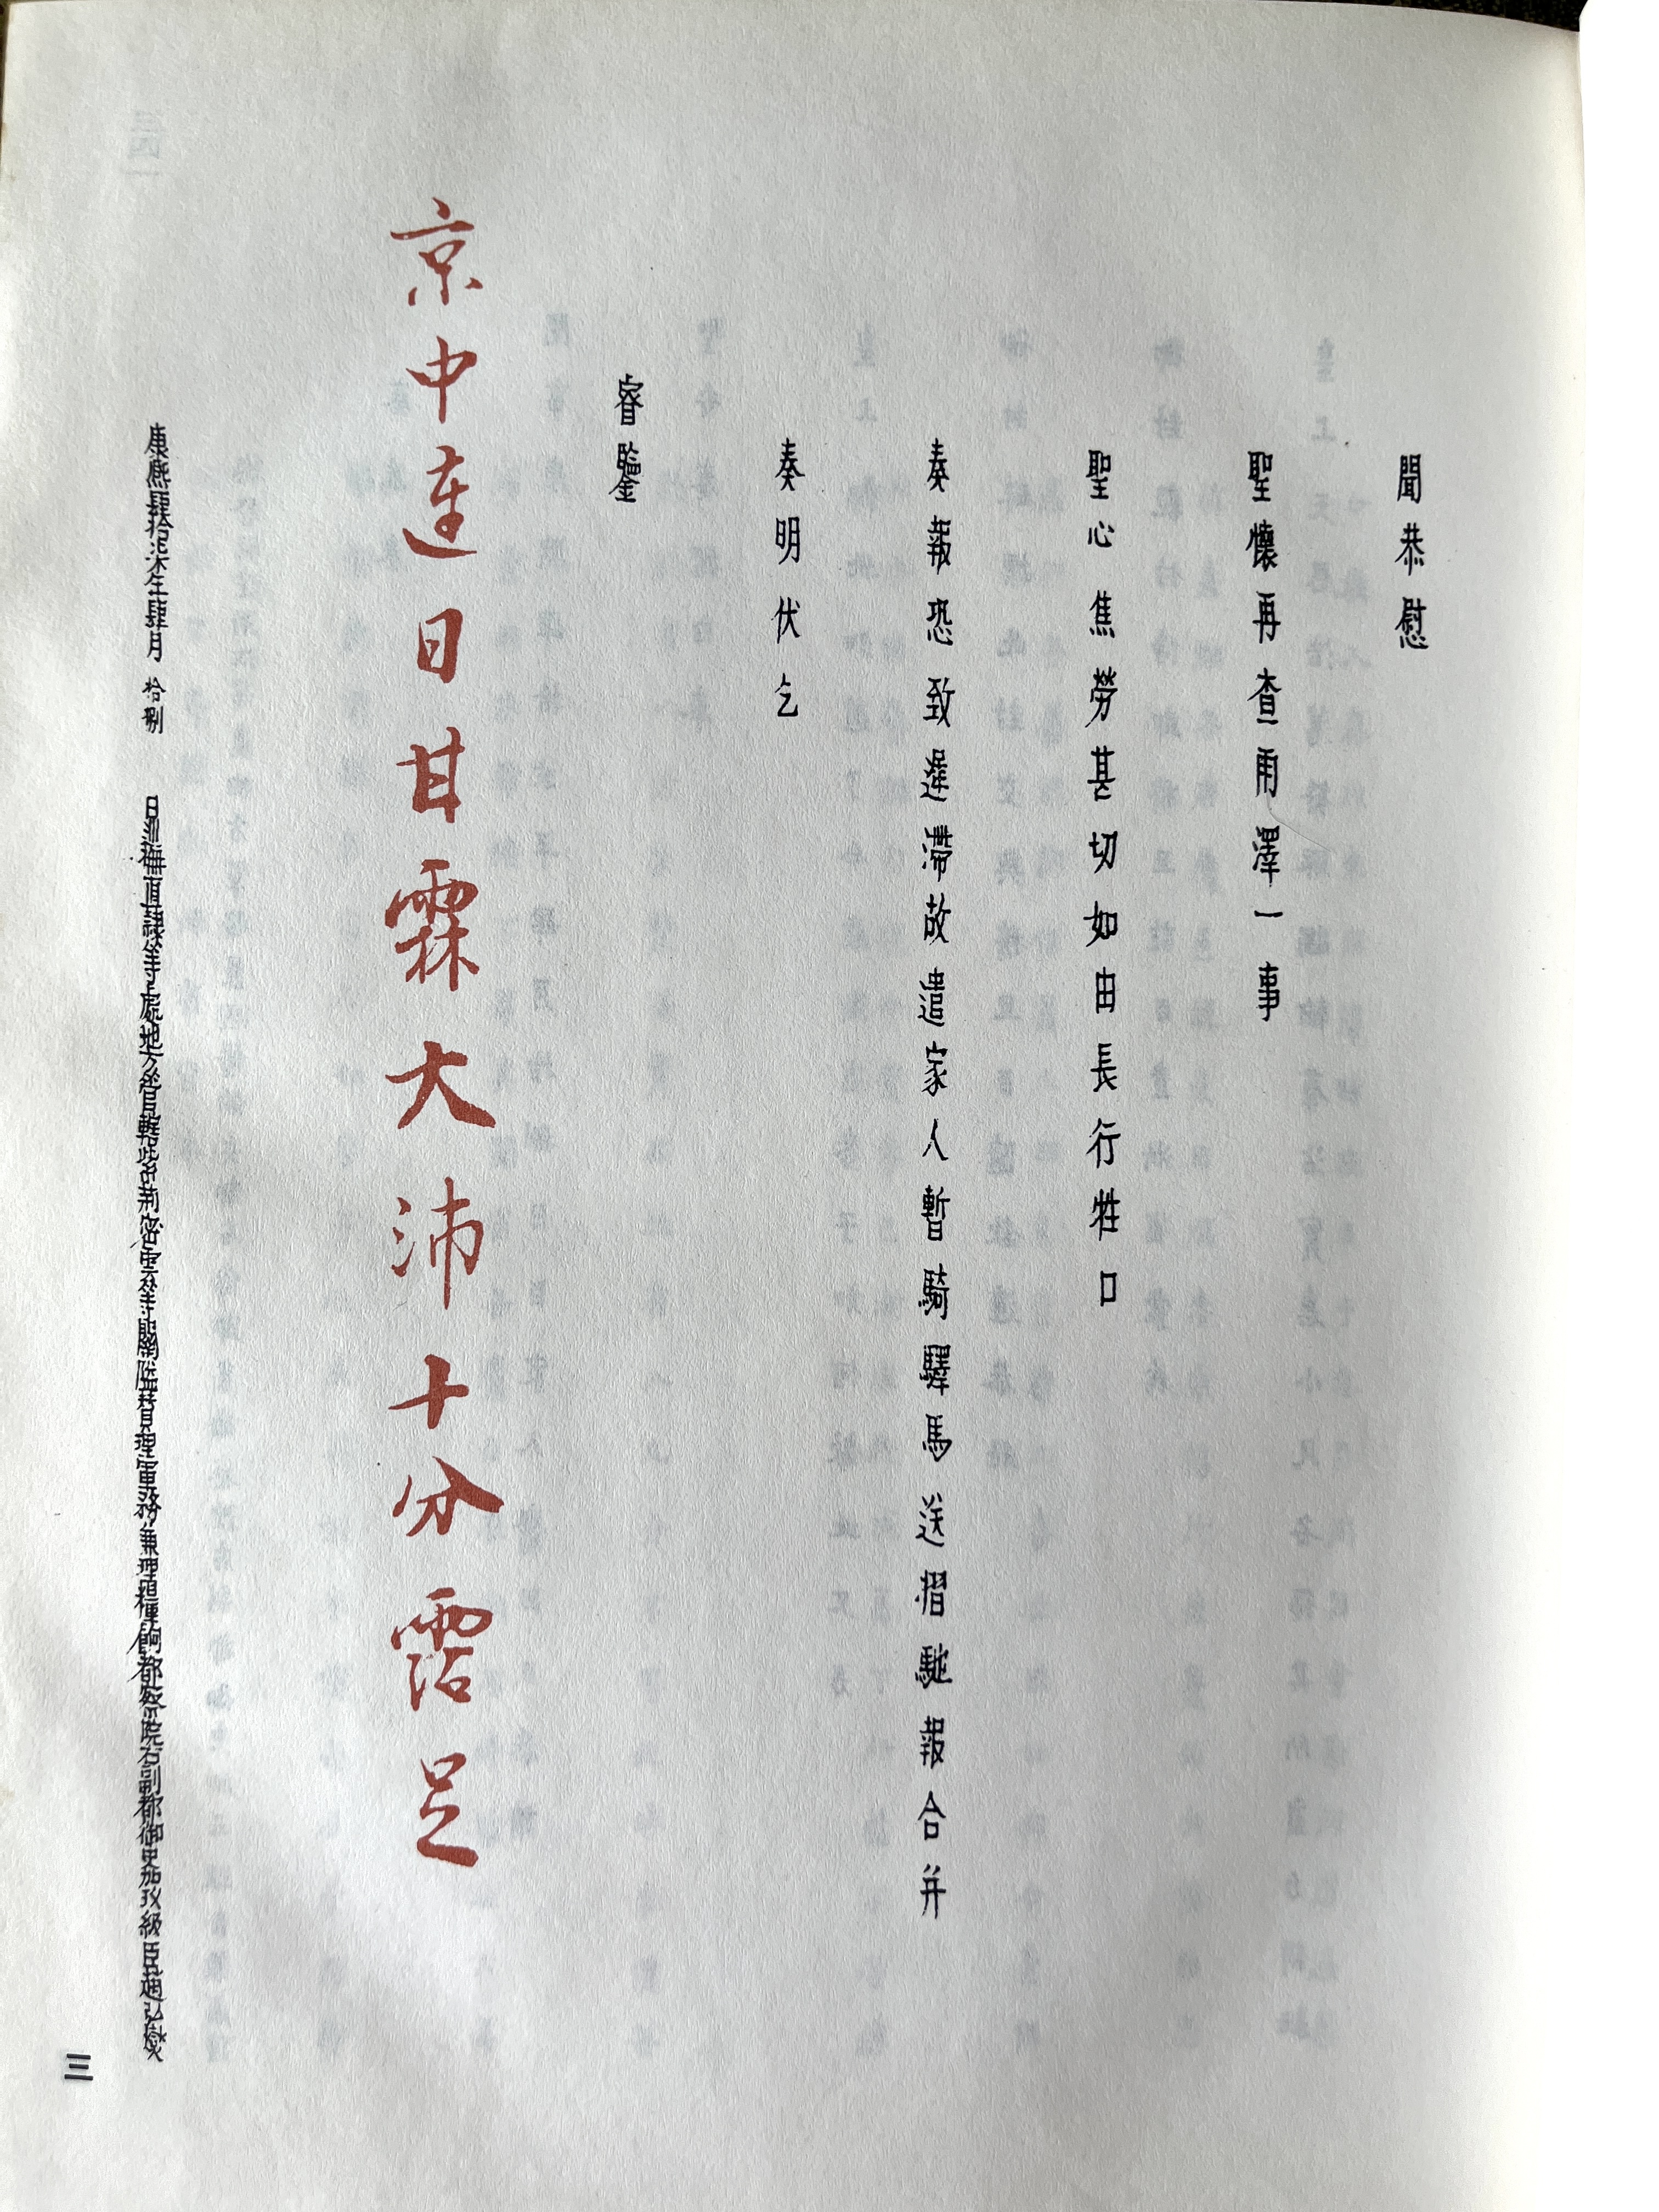 聞恭慰
聖懷再查雨澤一事
聖心焦勞甚切如由長行牲口
奏報恐致遲滯故遣家人暫騎驛馬送摺馳報合并
奏明伏乞
睿鑒
京中連日甘霖大沛十分霑足
康熙肆拾柒年肆月拾捌日巡撫直隸等處地方管轄紫荊密雲等關隘贊理軍務兼理糧餉都察院右副都御史加玖級臣趙弘燮
三